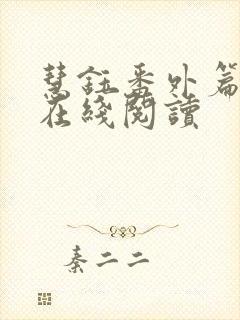 慧鈺番外篇
在綫閱讀
秦二二